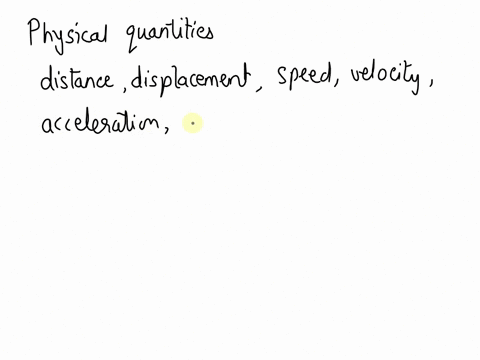 Physical quantities
distance, displacement, speed, velocity,
acceleration,